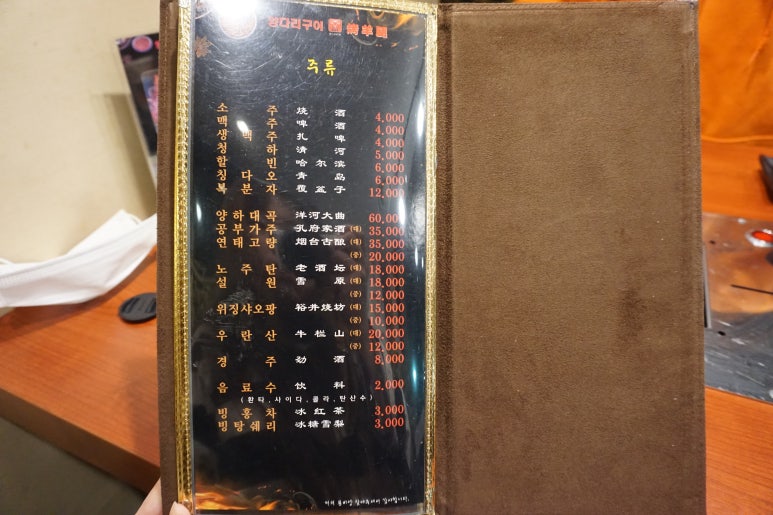 양다리구이 烤羊腿
주류
소 주 烧 酒 4,000
맥 주 啤 酒 4,000
생 맥 주 扎 啤 4,000
청 하 清 河 5,000
할 빈 哈 尔 滨 6,000
칭 다 오 青 岛 6,000
복 분 자 覆 盆 子 12,000
양 하 대 곡 洋 河 大 曲 60,000
공 부 가 주 孔 府 家 酒 (대) 35,000
연 태 고 량 烟 台 古 酿 (대) 35,000
(중) 20,000
노 주 탄 老 酒 坛 (대) 18,000
설 원 雪 原 (대) 18,000
(중) 12,000
위징샤오팡 裕 井 烧 坊 (대) 15,000
(중) 10,000
우 란 산 牛 栏 山 (대) 20,000
(중) 12,000
경 주 劲 酒 8,000
음 료 수 饮 料 2,000
(환타.사이다.콜라.탄산수)
빙 홍 차 冰 红 茶 3,000
빙 탕 쉐 리 冰 糖 雪 梨 3,000